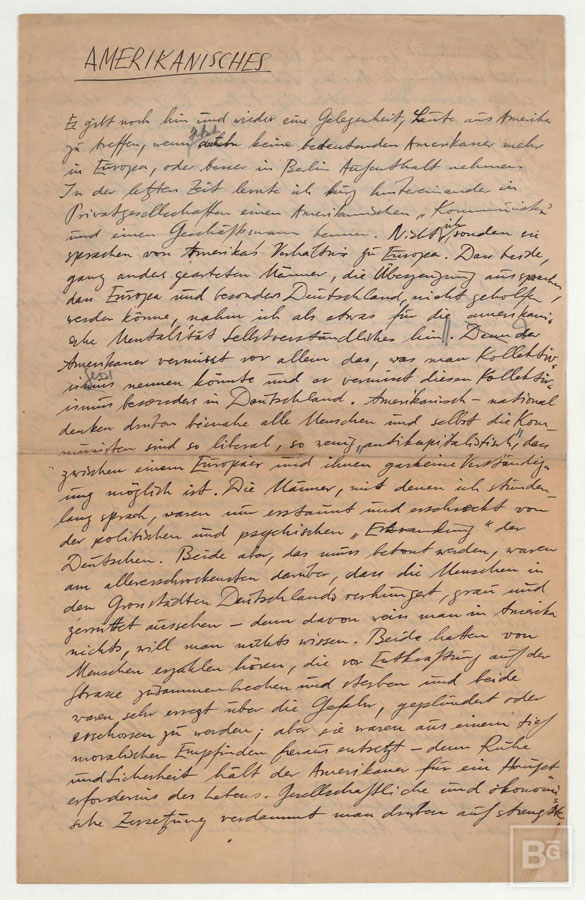 AMERIKANISCHES
Es gibt noch hin und wieder eine Gelegenheit, Leute aus Amerika
zu treffen, wenn aber keine bedeutenden Amerikaner mehr
in Europa, oder besser in Berlin Aufenthalt nehmen.
In der letzten Zeit lernte ich kurz hintereinander in
Privatgesellschaften einen Amerikanischen „Kommunisten"
und einen Geschäftsmann kennen. Nicht sie
sprachen von Amerikas Verhältnis zu Europa. Dass beide,
ganz anders gearteten Männer, die Überzeugung aussprachen,
dass Europa und besonders Deutschland, nicht geholfen
werden könne, nahm ich als etwas für die amerikani-
sche Mentalität Selbstverständliches hin. Denn der
Amerikaner vermisst vor allem das, was man Kollektiv-
ismus nennen könnte und er vermisst diesen Kollektiv-
ismus besonders in Deutschland. Amerikanisch-national
denken drüben beinahe alle Menschen und selbst die Kom-
munisten sind so liberal, so wenig „antikapitalistisch", dass
zwischen einem Europäer und ihnen garkeine Verständig-
ung möglich ist. Die Männer, mit denen ich stunden-
lang sprach, waren nur erstaunt und erschreckt von
der politischen und psychischen „Erkrankung" der
Deutschen. Beide aber, das muss betont werden, waren
am allererschrockensten darüber, dass die Menschen in
den Grosstädten Deutschlands verhungert, grau und
zerrüttet aussehen – denn davon weiss man in Amerika
nichts, will man nichts wissen. Beide hatten von
Menschen erzählen hören, die vor Entkräftung auf der
Strasse zusammenbrechen und sterben und beide
waren sehr erregt über die Gefahr, geplündert oder
erschossen zu werden; aber sie waren aus einem tief
moralischen Empfinden heraus entsetzt – denn Ruhe
und Sicherheit hält der Amerikaner für ein Haupt
erfordernis des Lebens. Gesellschaftliche und ökonomi-
sche Zersetzung verdammt man drüben auf strengste.
BG